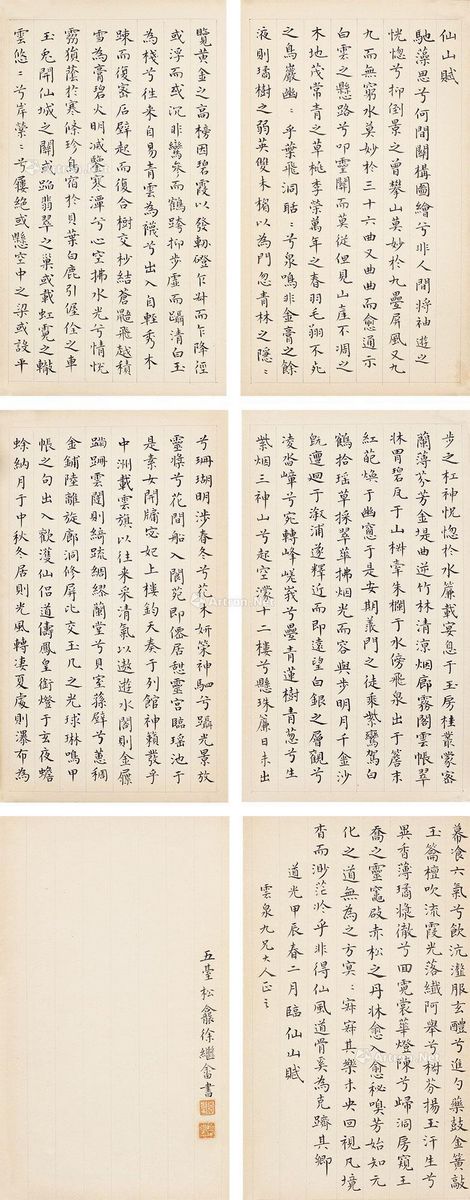 仙山賦
馳藻思兮何間關構圖繪兮非人間將袖遊之
恍惚兮抑倒景之曾攀山莫妙於九疊屏風又九
九而無窮水莫妙於三十六曲又曲曲而愈通示
白雲之懸路兮叩雲關而莫從但見山崖不凋之
木地茂常青之草桃李榮萬年之春羽毛翔不死
之鳥巖幽〻乎葉飛洞聒〻兮泉鳴非金膏之餘
液則璚樹之弱英雙木榻以為門忽青林之隱〻
覽黃金之高榜因碧霞以發軔磴乍升而乍降徑
或浮而或沉非鸞參而鶴跨抑步虛而躡清白玉
為棧兮往來自易青雲為磯兮出入自輕秀木
踈而復密石壁起而復合樹交杪結蒼龍飛越積
雪為膏碧火明滅鑒寒潭兮心空拂水光兮情恍
霧猗蔭於寒條珍鳥宿於貝葉白鹿引偓佺之車
玉兔開仙城之闕或蹈翡翠之巢或載虹霓之轍
雲悠〻兮岸縈〻兮履絶或懸空中之梁或設平
步之杠神恍惚於水簾載宴息于玉房桂叢蒙密
蘭薄芬芳金堤曲逆竹林清涼烟廊霧閣雲帳翠
牀冐碧瓦于山椒牽朱欄于水傍飛泉出于簷末
紅葩煥于幽窻于是女期羨門之徒乘紫鸞駕白
鶴拾瑶草採翠華拂烟光而容與步明月千金沙
既邅迴于溆浦遂釋近而即遠望白銀之層觀兮
凌沓嶂兮宛轉峰兮疊青蓮樹青葱兮生
紫烟三神山兮起空濛十二樓兮懸珠簾日未出
兮珊瑚明涉春冬兮花木妍策神駟兮躡光景放
靈槳兮花間船入閬宛即儒居憇靈宮臨瑶池于
是素女開牖宓妃上樓鈞天奏于列館神籟發乎
中洲載雲旗以往来采清氣以遨遊水閣則金屧
蹁躚雲閣則綺疏綢繆蘭堂兮貝室蓀壁兮蕙稠
金鋪陸離旋廊洞修屏比交玉几之光球琳鳴甲
帳之句出入歡濩仙侣道儔鳳皇銜燈于玄夜蟾
蜍納月于中秋冬居則光風轉凄夏處則瀑布為
幕飡六氣兮飲沆瀣服玄醴兮進勺藥鼓金簧敲
玉籥檀吹流霞光落纖阿舉兮樹芬揚玉汗生兮
異香薄璚漿徹兮回霓裳華燈陳兮歸洞房窺王
喬之靈竈鼓赤松之丹牀愈入愈秘嗅芳始知元
化之道無為之方冥〻寂寂其樂未央回視凡境
杳而渺茫於乎非得仙風道骨奚為克躋其鄉
道光甲辰春二月臨仙山賦
雲泉九兄大人正之
五臺松龕徐繼畬書